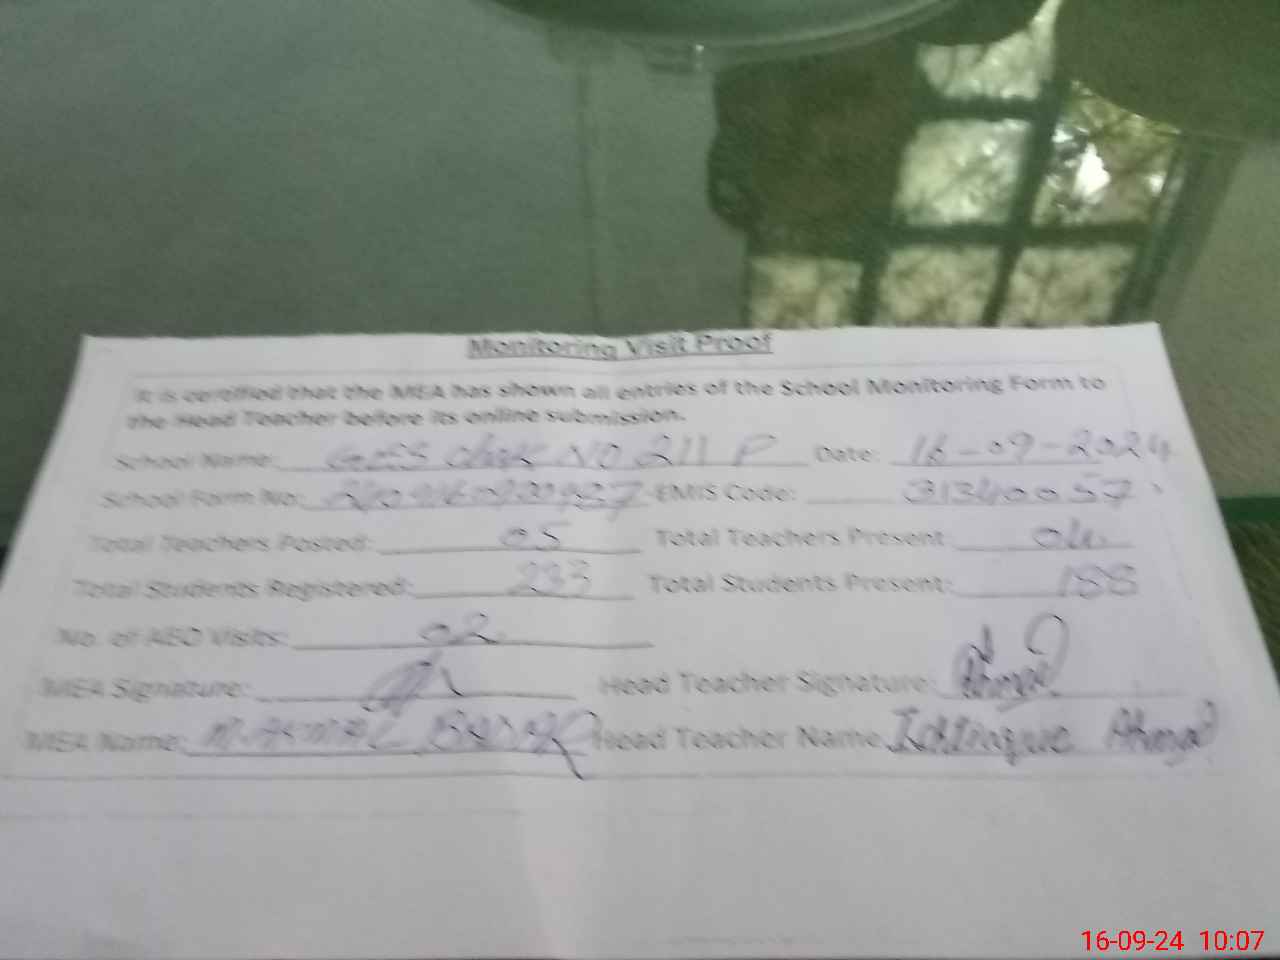 Monitoring Visit Proof
It is certified that the MEA has shown all entries of the School Monitoring Form to
the Head Teacher before its online submission.
School Name: Chak NO 211 P Date: 16-09-2024
School Form No: EMIS Code: 31340057
Total Teachers Posted: 05 Total Teachers Present: 04
Total Students Registered: 233 Total Students Present: 188
No. of AEO Visits: 02
MEA Signature: Head Teacher Signature: Ahmad
MEA Name: Head Teacher Name: Ahmad
16-09-24 10:07